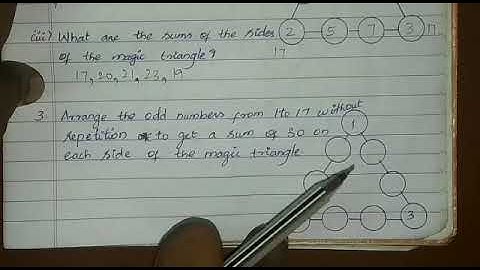 (iii) What are the sums of the sides
of the magic triangle?
17, 20, 21, 23, 19
2 5 7 3 17
17
3. Arrange the odd numbers from 1 to 17 without
repetition to get a sum of 30 on
each side of the magic triangle
1
3